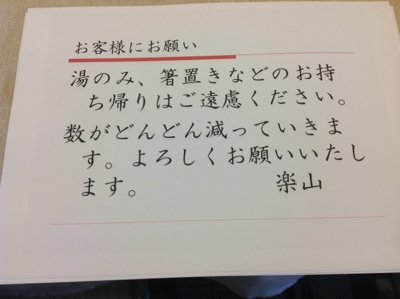 お客様にお願い
湯のみ、箸置きなどのお持
ち帰りはご遠慮ください。
数がどんどん減っていきま
す。よろしくお願いいたし
ます。 楽山